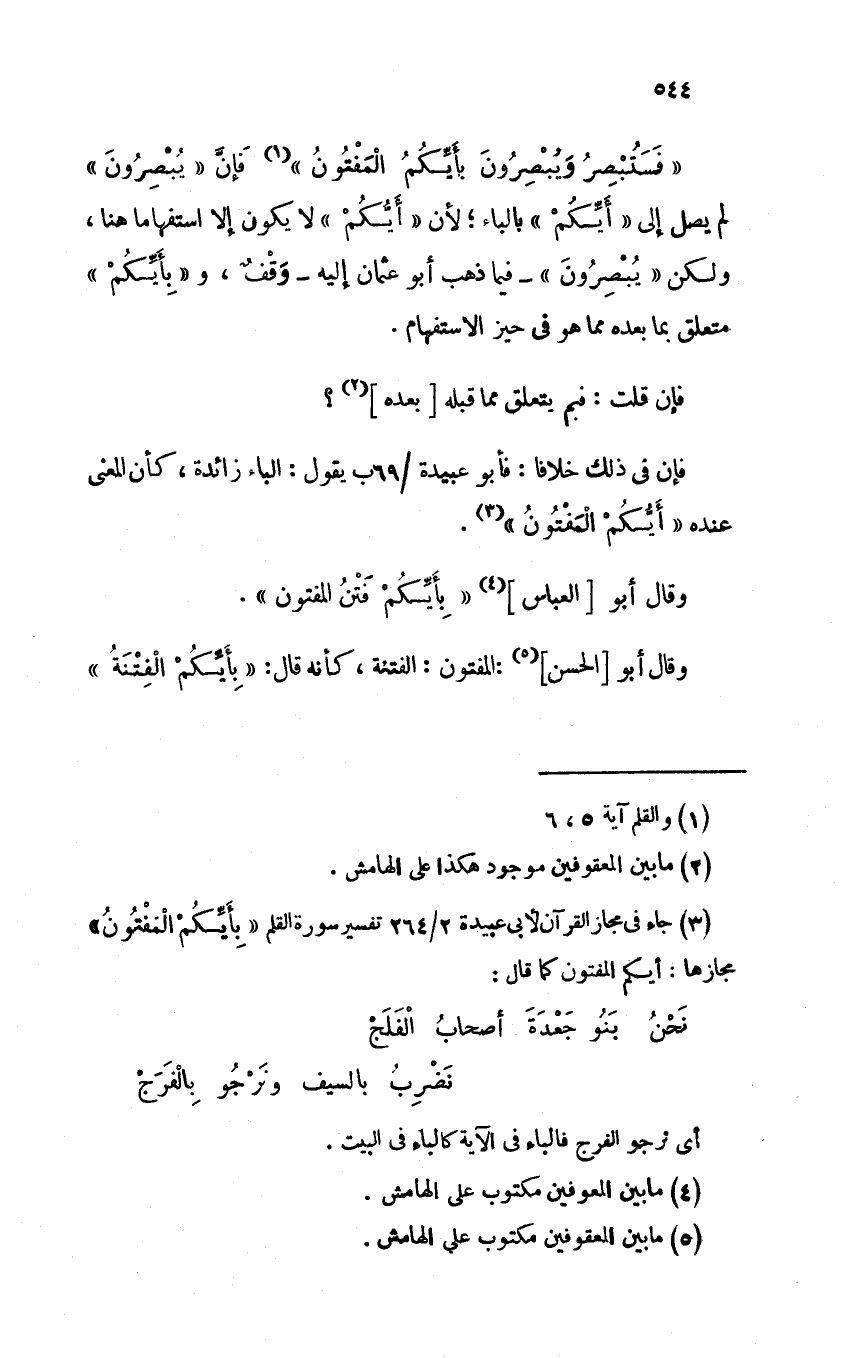 ٥٤٤
« فَسَتُبْصِرُ وَيُبْصِرُونَ بِأَيِّكُمُ الْمَفْتُونُ »(١) فَإِنَّ « يُبْصِرُونَ »
لم يصل إلى « أَيِّكُمْ » بالباء ؛ لأن « أَيُّكُمْ » لا يكون إلا استفهاما هنا ،
ولكن « يُبْصِرُونَ » ـ فيما ذهب أبو عثمان إليه ـ وَقْفٌ ، و « بِأَيِّكُمْ »
متعلق بما بعده مما هو فى حيز الاستفهام .
فإن قلت : فبم يتعلق مما قبله [ بعده ](٢) ؟
فإن فى ذلك خلافا : فأبو عبيدة /٦٩ب يقول : الباء زائدة ، كأن المعنى
عنده « أَيُّكُمْ الْمَفْتُونُ »(٣) .
وقال أبو [ العباس ](٤) « بِأَيِّكُمْ فَتْنُ المفتون » .
وقال أبو [الحسن](٥) :المفتون : الفتنة ، كأنه قال: « بِأَيِّكُمْ الْفِتْنَةُ »
(١) والقلم آية ٥ ، ٦
(٢) مابين المعقوفين موجود هكذا على الهامش .
(٣) جاء فى مجاز القرآن لأبى عبيدة ٢/ ٢٦٤ تفسير سورة القلم « بِأَيِّكُمْ الْمَفْتُونُ»
مجازها : أيكم المفتون كما قال :
نَحْنُ بَنُو جَعْدَةَ أصحابُ الْفَلَجْ
نَضْرِبُ بالسيف ونَرْجُو بِالْفَرَجْ
أى نرجو الفرج فالباء فى الآية كالباء فى البيت .
(٤) مابين المعوفين مكتوب على الهامش .
(٥) مابين المعقوفين مكتوب علي الهامش .